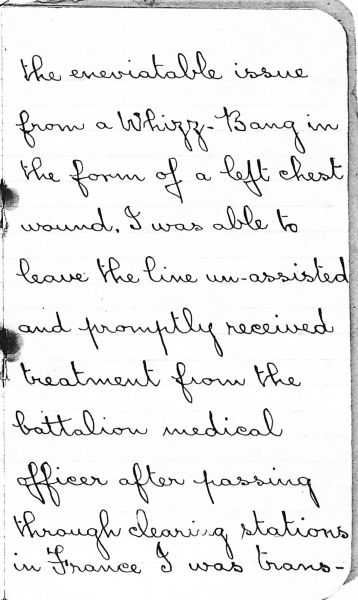 the eneviatable issue
from a Whizz-Bang in
the form of a left chest
wound. I was able to
leave the line un-assisted
and promptly received
treatment from the
battalion medical
officer after passing
through clearing stations
in France I was trans-